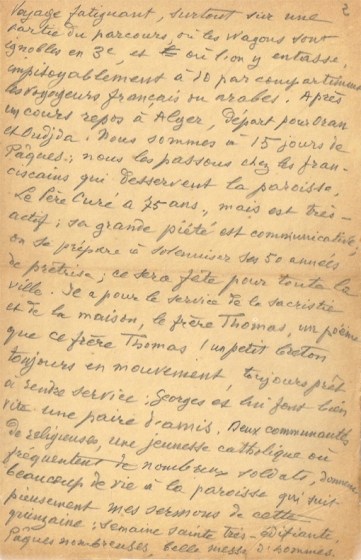 2
Voyage fatigant, surtout sur une
partie du parcours, où les wagons sont
ignobles en 3e, et où l'on y entasse
impitoyablement à 10 par compartiment
les voyageurs français ou arabes. Après
un cours repos à Alger, départ pour Oran
et Oudjda. Nous sommes à 15 jours de
Pâques; nous les passons chez les fran-
ciscains qui desservent la paroisse.
Le Père Curé a 75 ans, mais est très-
actif; sa grande piété est communicative;
on se prépare à solenniser ses 50 années
de prêtrise; ce sera fête pour toute la
ville. Il a pour le service de la sacristie
et de la maison, le frère Thomas, un poème
que ce frère Thomas! un petit breton
toujours en mouvement, toujours prêt
à rendre service; Georges et lui font bien
vite une paire d'amis. Deux communautés
de religieuses, une jeunesse catholique où
fréquentent de nombreux soldats, donnent
beaucoup de vie à la paroisse qui suit
pieusement mes sermons de cette
quinzaine; Semaine sainte très-édifiante
Pâques nombreuses, belle messe d'hommes.